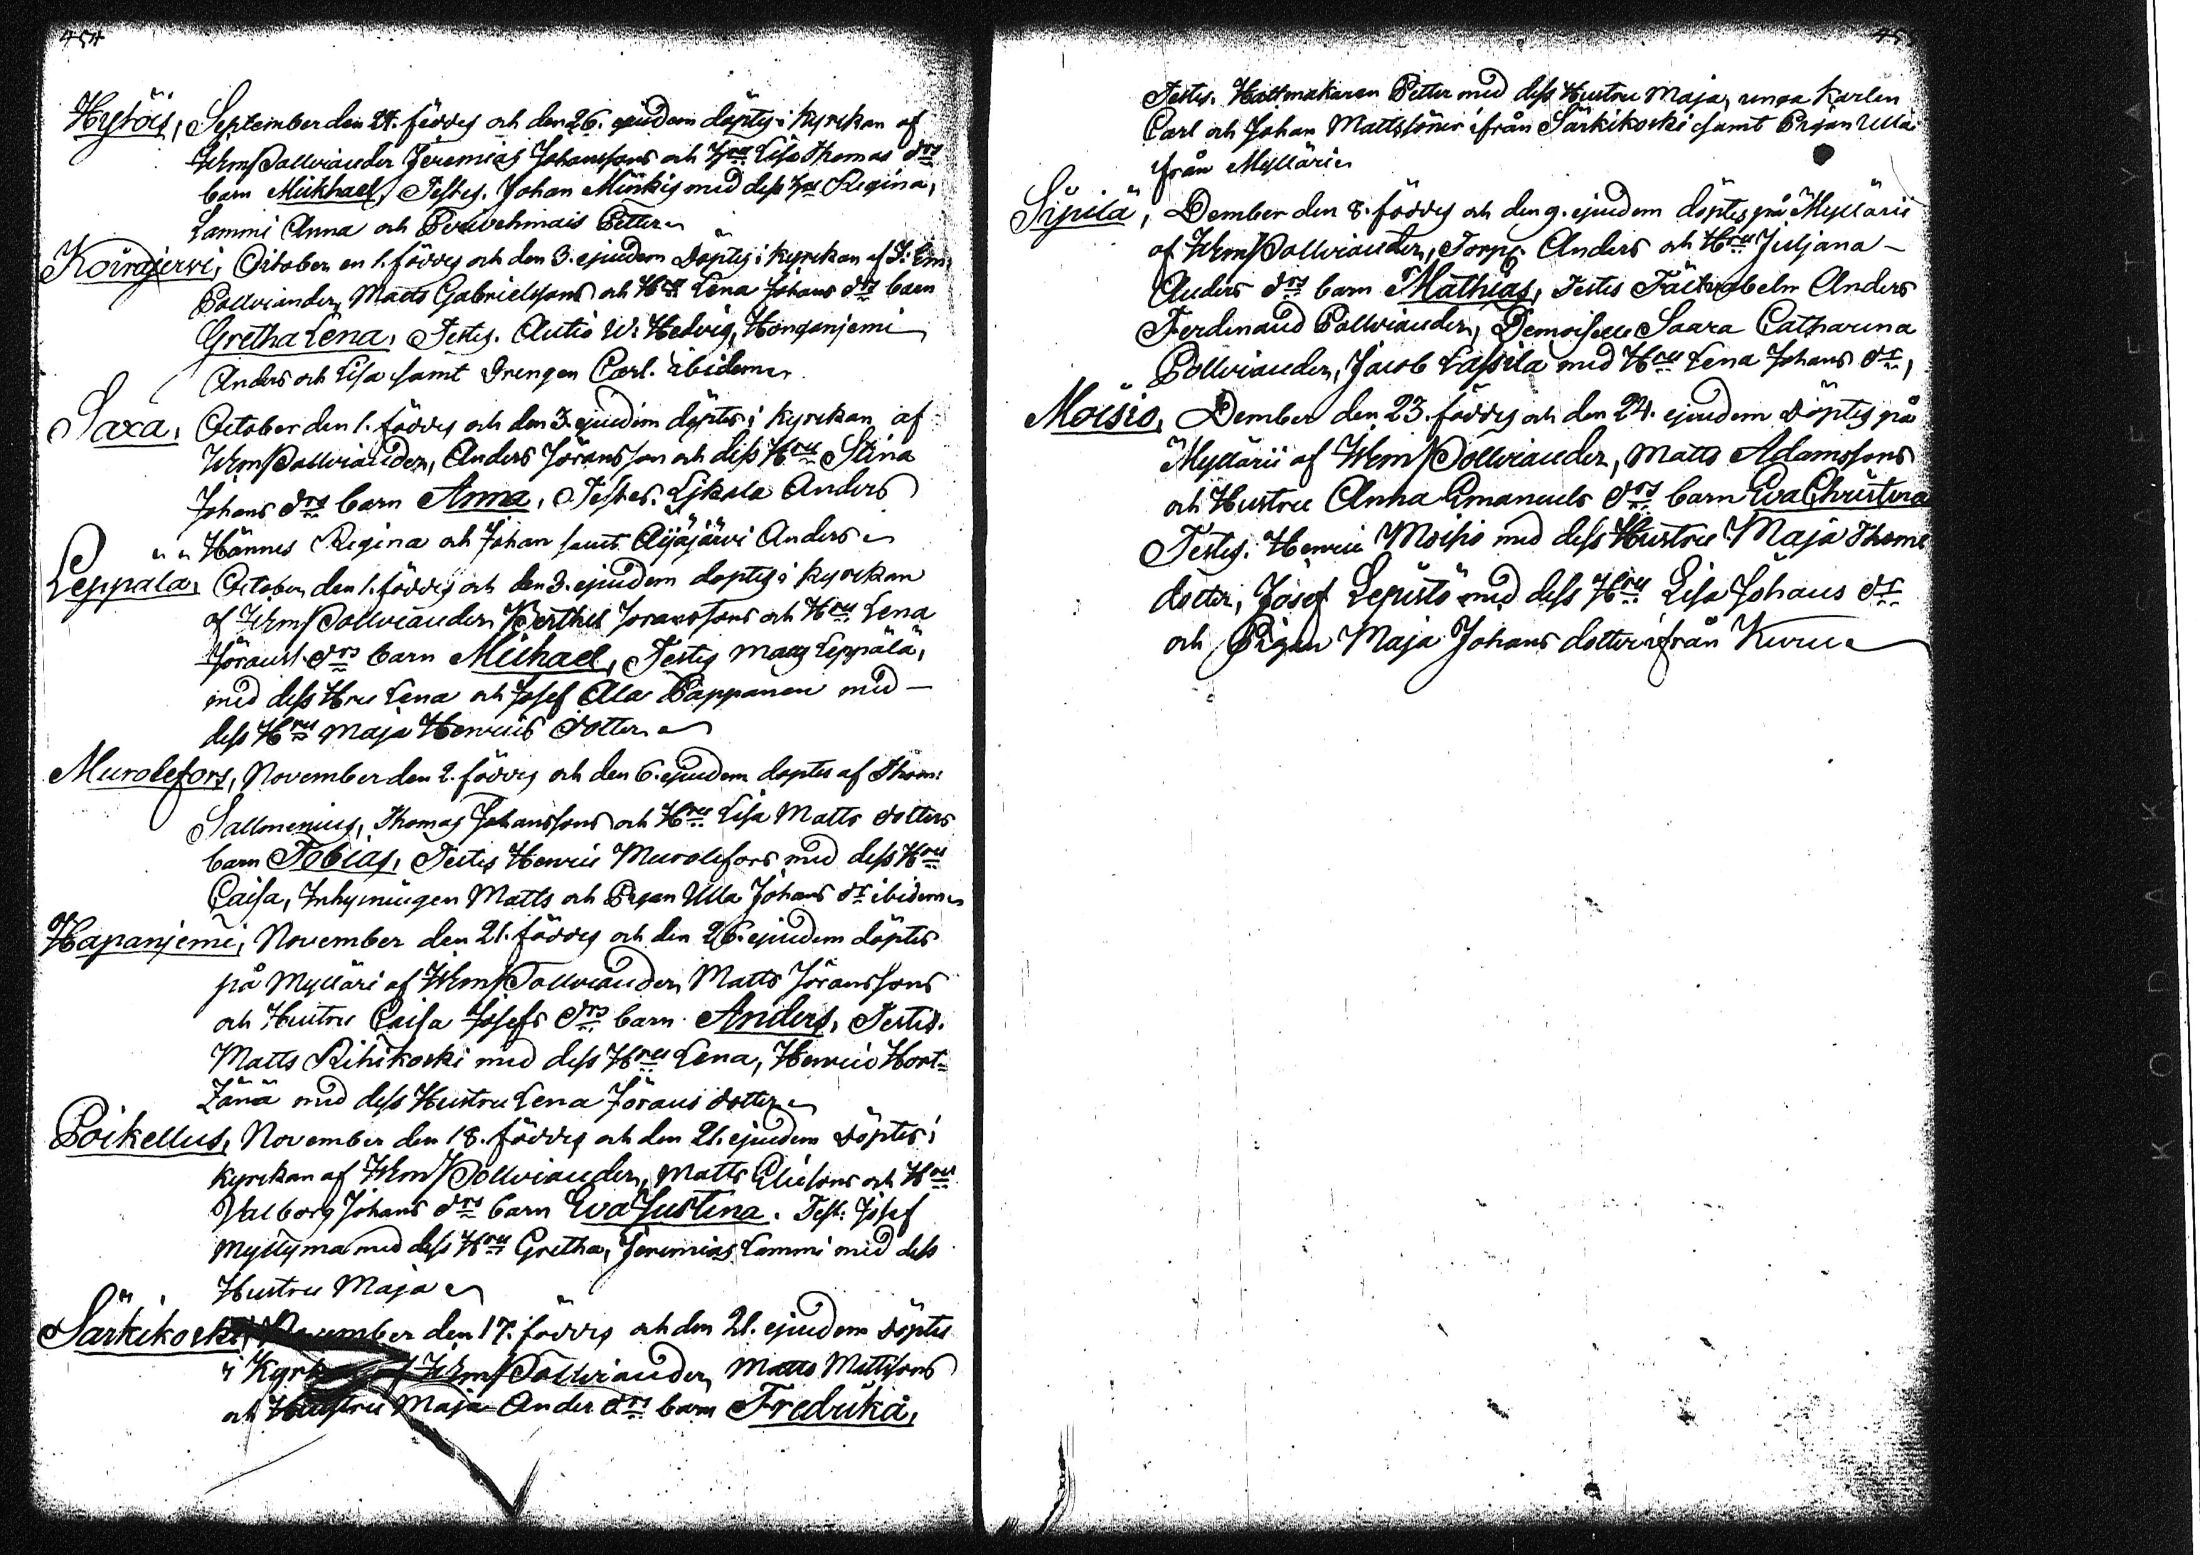 454
Hytöis, September den 24. föddes och den 26. ejudem döptes i Kyrckan af
WBm/Pollviander Jeremias Johanssons och Hru Lisa Thomas drs
barn Mickhael, Testes. Johan Minkis med dess Hru Regina,
Lammi Anna och Petter
Koirajervi, October en 1. föddes och den 3. ejudem Döptes i Kyrckan af
Pollviander, Matts Gabrielssons och Hru Lena Johans drs barn
Gretha Lena, Testes. Autio W. Hedvig, Honganjemi
Anders och Lisa samt Drengen Carl. ibidem
Saxa, October den 1. föddes och den 3. ejudem döptes i Kyrckan af
Pollviander, Anders Jöransson och dess Hru Stina
Johans drs barn Anna, Testes. Ljkala Anders
Hännes Regina och Johan samt Aijäjärvi Anders
Leppälä, October den 1. föddes och den 3. ejudem döptes i Kyrckan
af Pollviander Berthil Joranssons och Hru Lena
Jöransl. drs barn Michael, Testes Mag Leppälä,
med dess Hru Lena och Josef Ala Pappanen med
dess Hru Maja Henrics Dotter
Murolefors, November den 2. föddes och den 6. ejudem doptes af Thom:
Sallmenius, Thomas Johanssons och Hru Lisa Matts dotters
barn Tobias, Testes Henric Murolefors med dess Hru
Caisa, Inhysningen Matts och Pigan Ulla Johans dr ibidem
Hapanjemi, November den 21. föddes och den 26. ejudem döptes
på Mylläri af Pollviander Matts Jöranssons
och Hustru Caisa Josefs drs barn Anders, Testes.
Matts Rihikoski med dess Hru Lena, Henric Hort=
Zänä med dess Hustru Lena Jörans dotter
Poikellus, November den 18. föddes och den 21. ejudem Döptes i
Kyrckan af Pollviander, Matts Elissons och Hru
Valborg Johans drs barn Eva Justina. Test: Josef
Myllyma med dess Hru Gretha, Jeremias Lammi med dess
Hustru Maja
Särkikoski, November den 17. föddes och den 21. ejudem Döptes
i Pollviander, Matts Mattssons
och Hustru Maja Anders drs barn Fredrika,
Testes. Hattmakaren Petter med dess Hustru Maja, unga Karlen
Carl och Johan Mattssöner ifrån Särkikoski samt Pigan Ulla
från Mylläri
Sipilä, Dember den 8. föddes och den 9. ejudem döptes på Mylläri
af Pollviander, Torp. Anders och Hru Juljana
Anders drs barn Mathias, Testes Anders
Ferdinand Pollviander, Demoiselle Saara Catharina
Pollviander, Jacob Lassila med Hru Lena Johans dr,
Moisio, Dember den 23. föddes och den 24. ejudem Döptes på
Myllärii af Pollviander, Matts Adamssons
och Hustru Anna Emanuels drs barn Eva Christina
Testes. Henric Moisio med dess Hustru Maja Thome
dotter, Josef Lepistö med dess Hru Lisa Johans dr
och Pigan Maja Johans dotter ifrån Kuru
KODAK SAFETY A